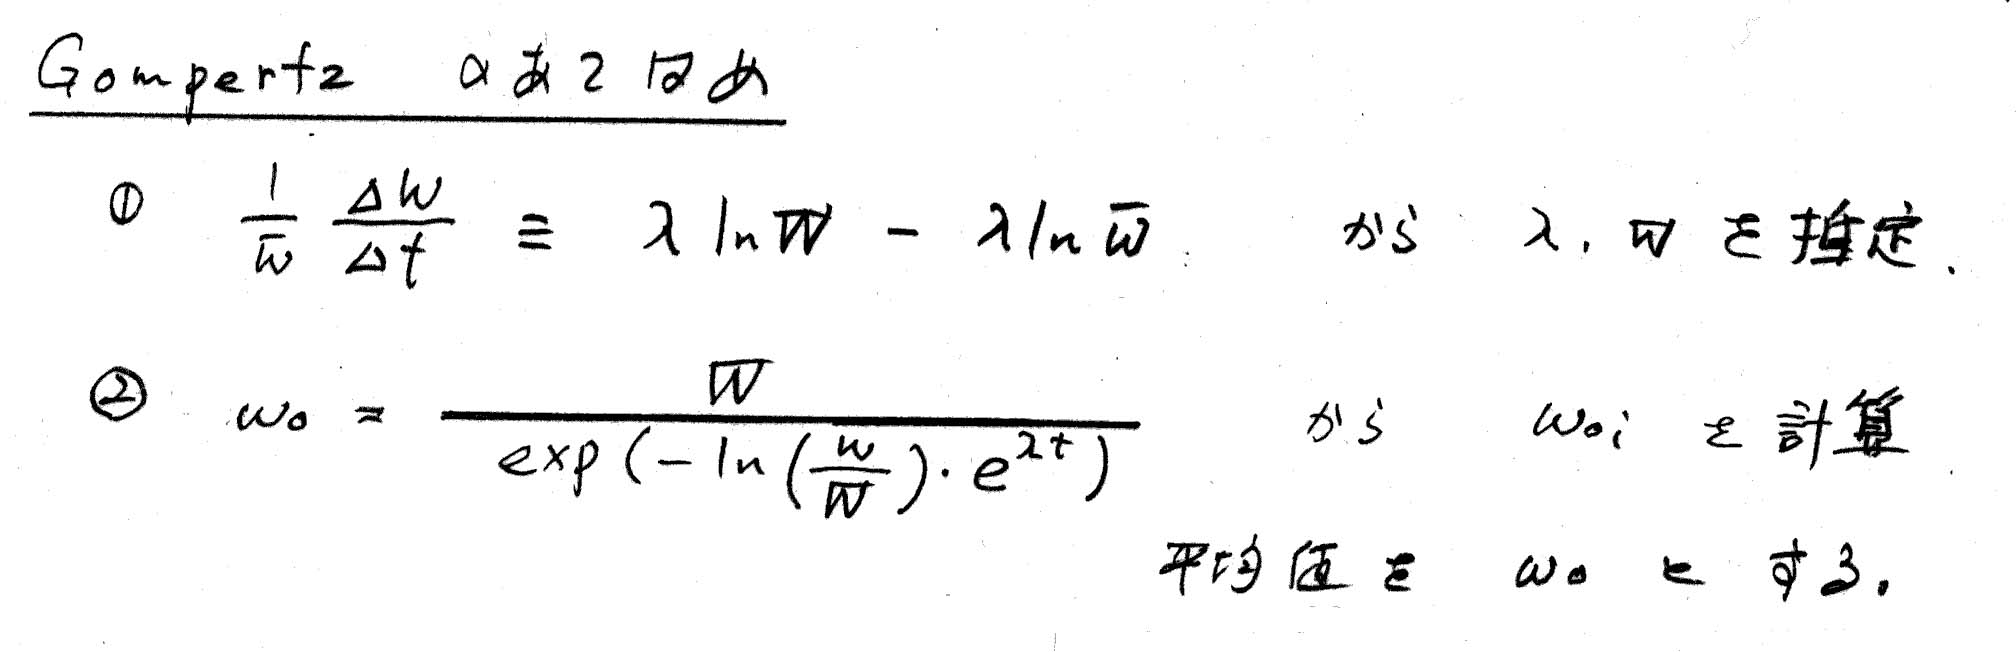 Gompertz のあてはめ
① 1/w̄ ΔW/Δt ≡ λ ln W − λ ln w̄ から λ, W を推定.
② w₀ = W / exp(−ln(w/W)・e^{λt}) から w₀ᵢ を計算
平均値を w₀ とする.